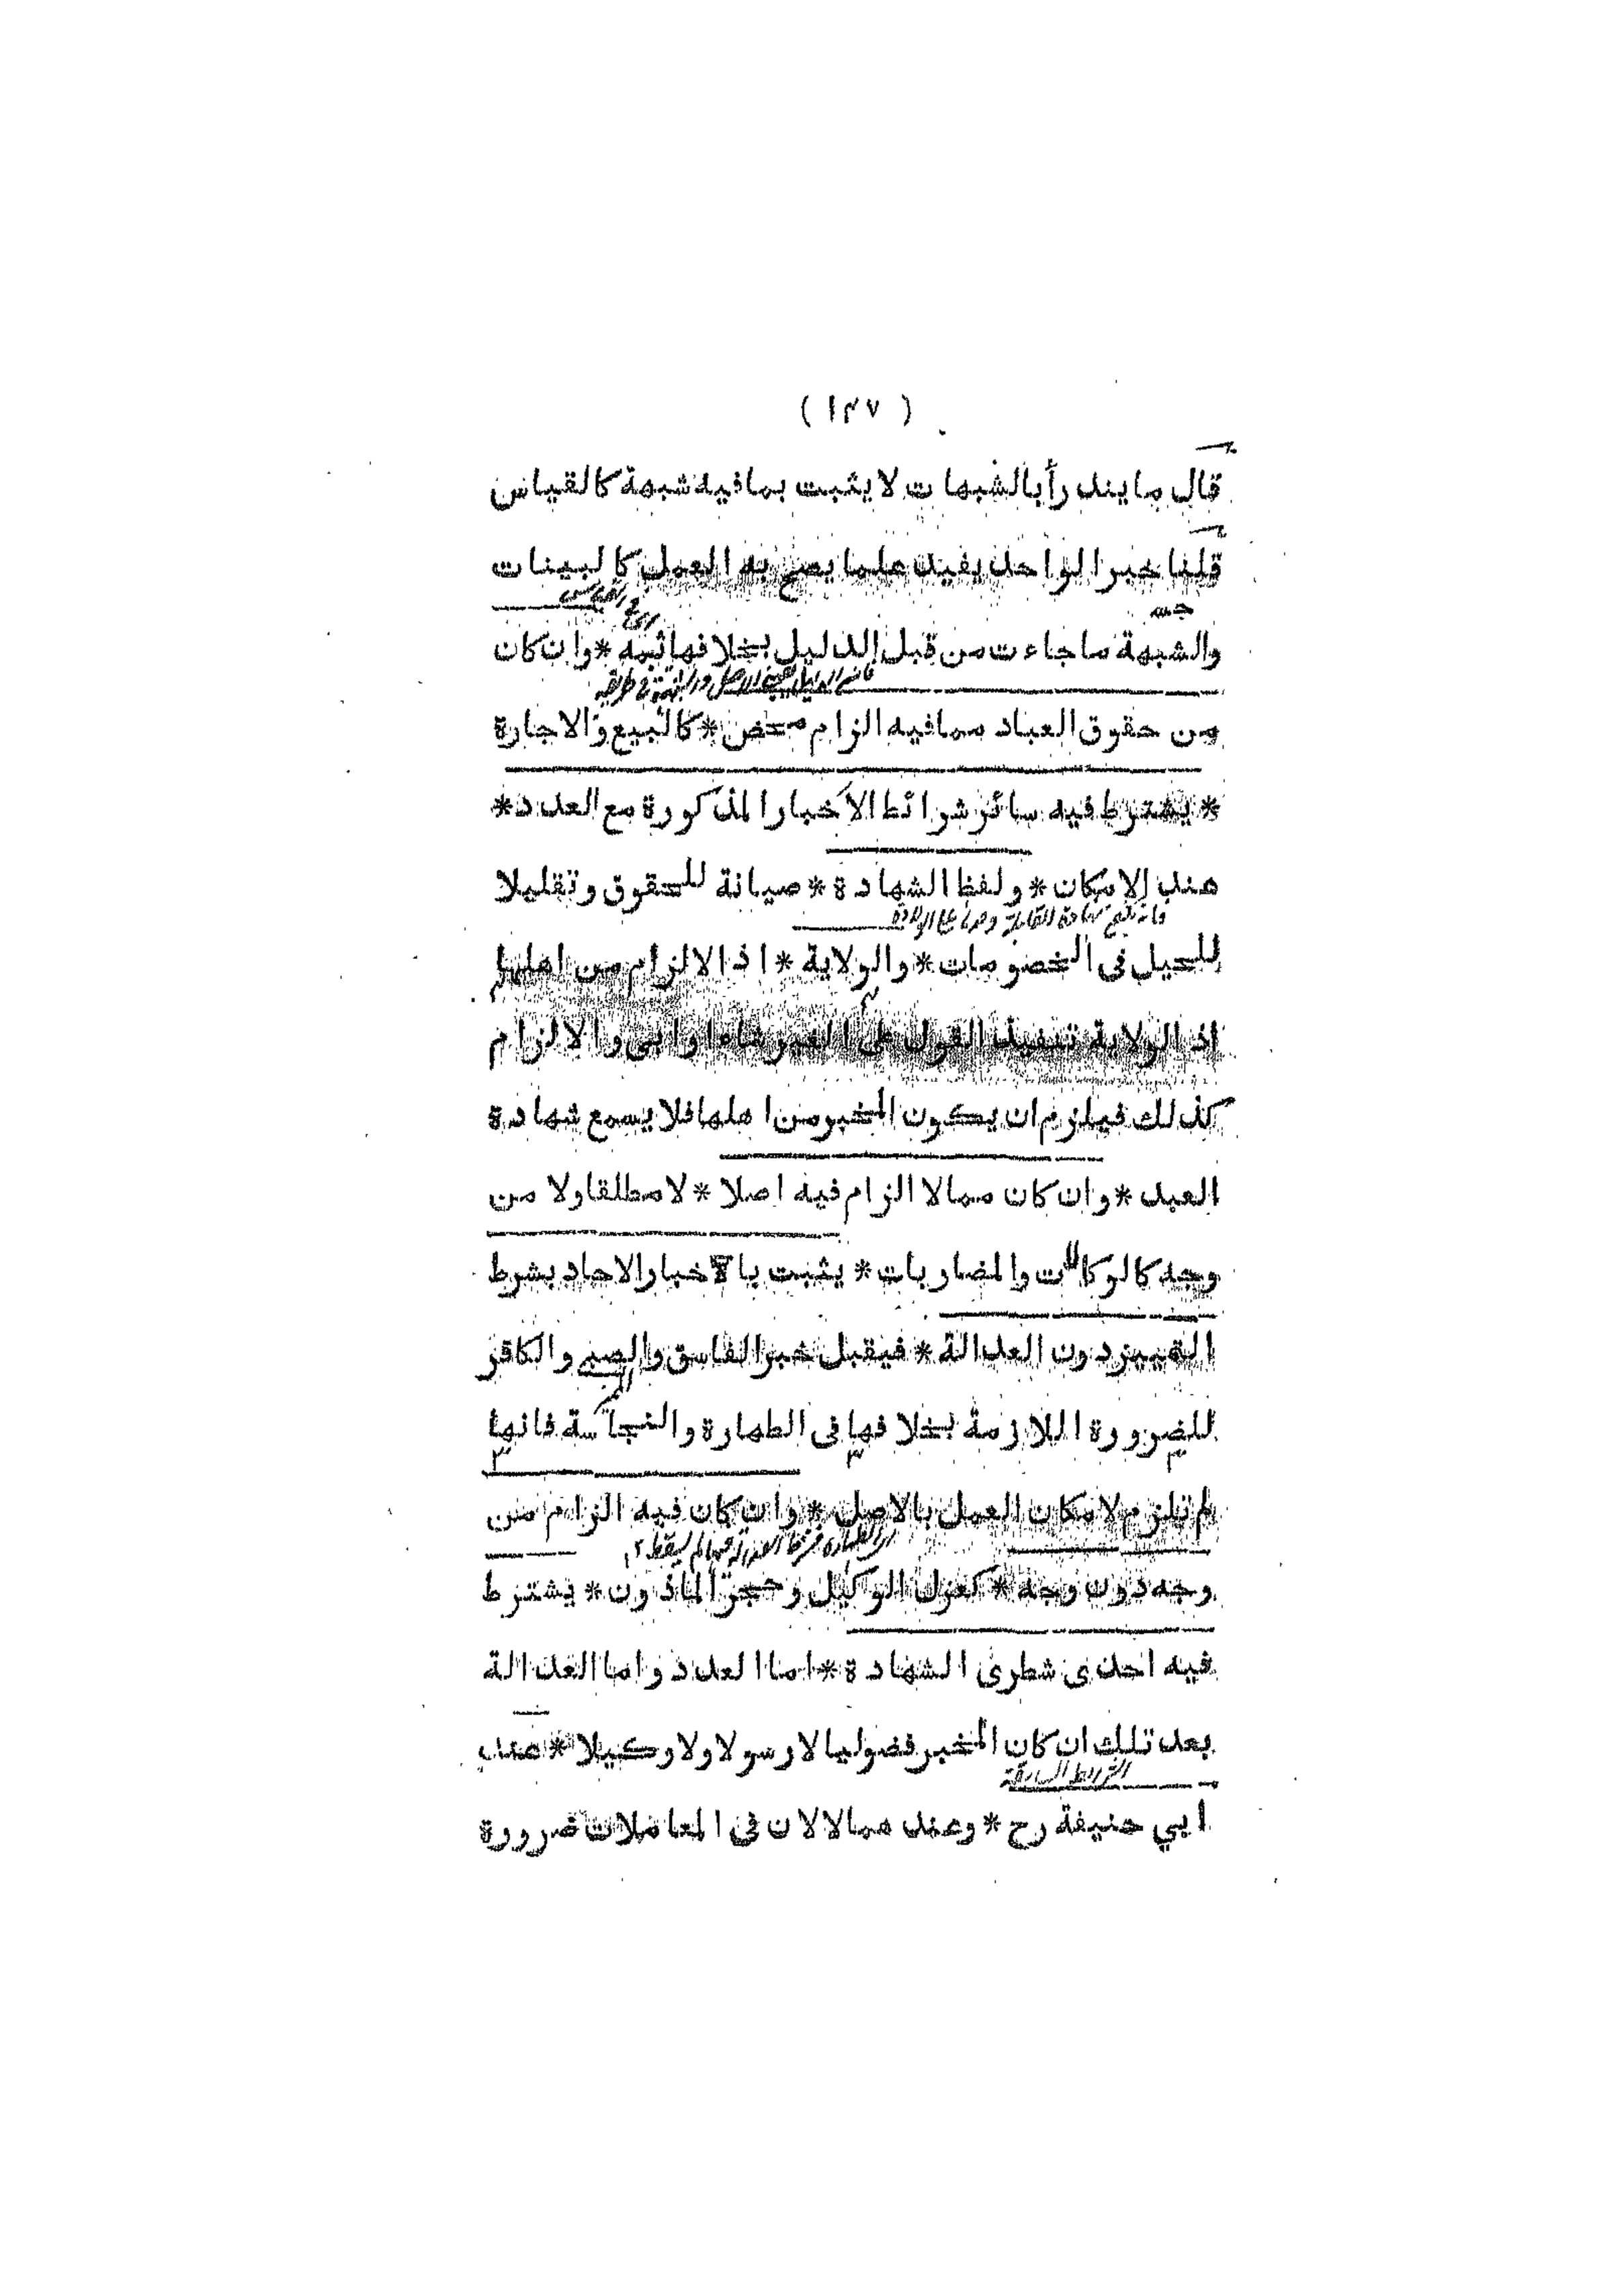 ( ١٣٧ )
قال ما يندرأ بالشبهات لا يثبت بما فيه شبهة كالقياس
قلنا خبر الواحد يفيد علما يصح به العمل كالبينات
والشبهة ما جاءت من قبل الدليل بخلافها ثمه * وان كان
من حقوق العباد مما فيه الزام محض * كالبيع والاجارة
* يشترط فيه سائر شرائط الاخبار المذكورة مع العدد *
عند الامكان * ولفظ الشهادة * صيانة للحقوق وتقليلا
وانه تقبل شهادة القابلة وحدها على الولادة
للحيل فى الخصومات * والولاية * اذ الالزام من اهلها
اذ الولاية تنفيذ القول على الغير شاء او ابى والالزام
كذلك فيلزم ان يكون المخبر من اهلها فلا يسمع شهادة
العبد * وان كان مما لا الزام فيه اصلا * لا مطلقا ولا من
وجه كالوكالات والمضاربات * يثبت بالاخبار الاحاد بشرط
التمييز دون العدالة * فيقبل خبر الفاسق والصبي والكافر
للضرورة اللازمة بخلافها فى الطهارة والنجاسة فانها
لم تلزم لامكان العمل بالاصل * وان كان فيه الزام من
وجه دون وجه * كعزل الوكيل وحجر الماذون * يشترط
فيه احدى شطرى الشهادة * اما العدد واما العدالة
بعد تلك ان كان المخبر فضوليا لا رسولا ولا وكيلا * عند
الشرائط السابقة
ابي حنيفة رح * وعند هما لا لان فى المعاملات ضرورة